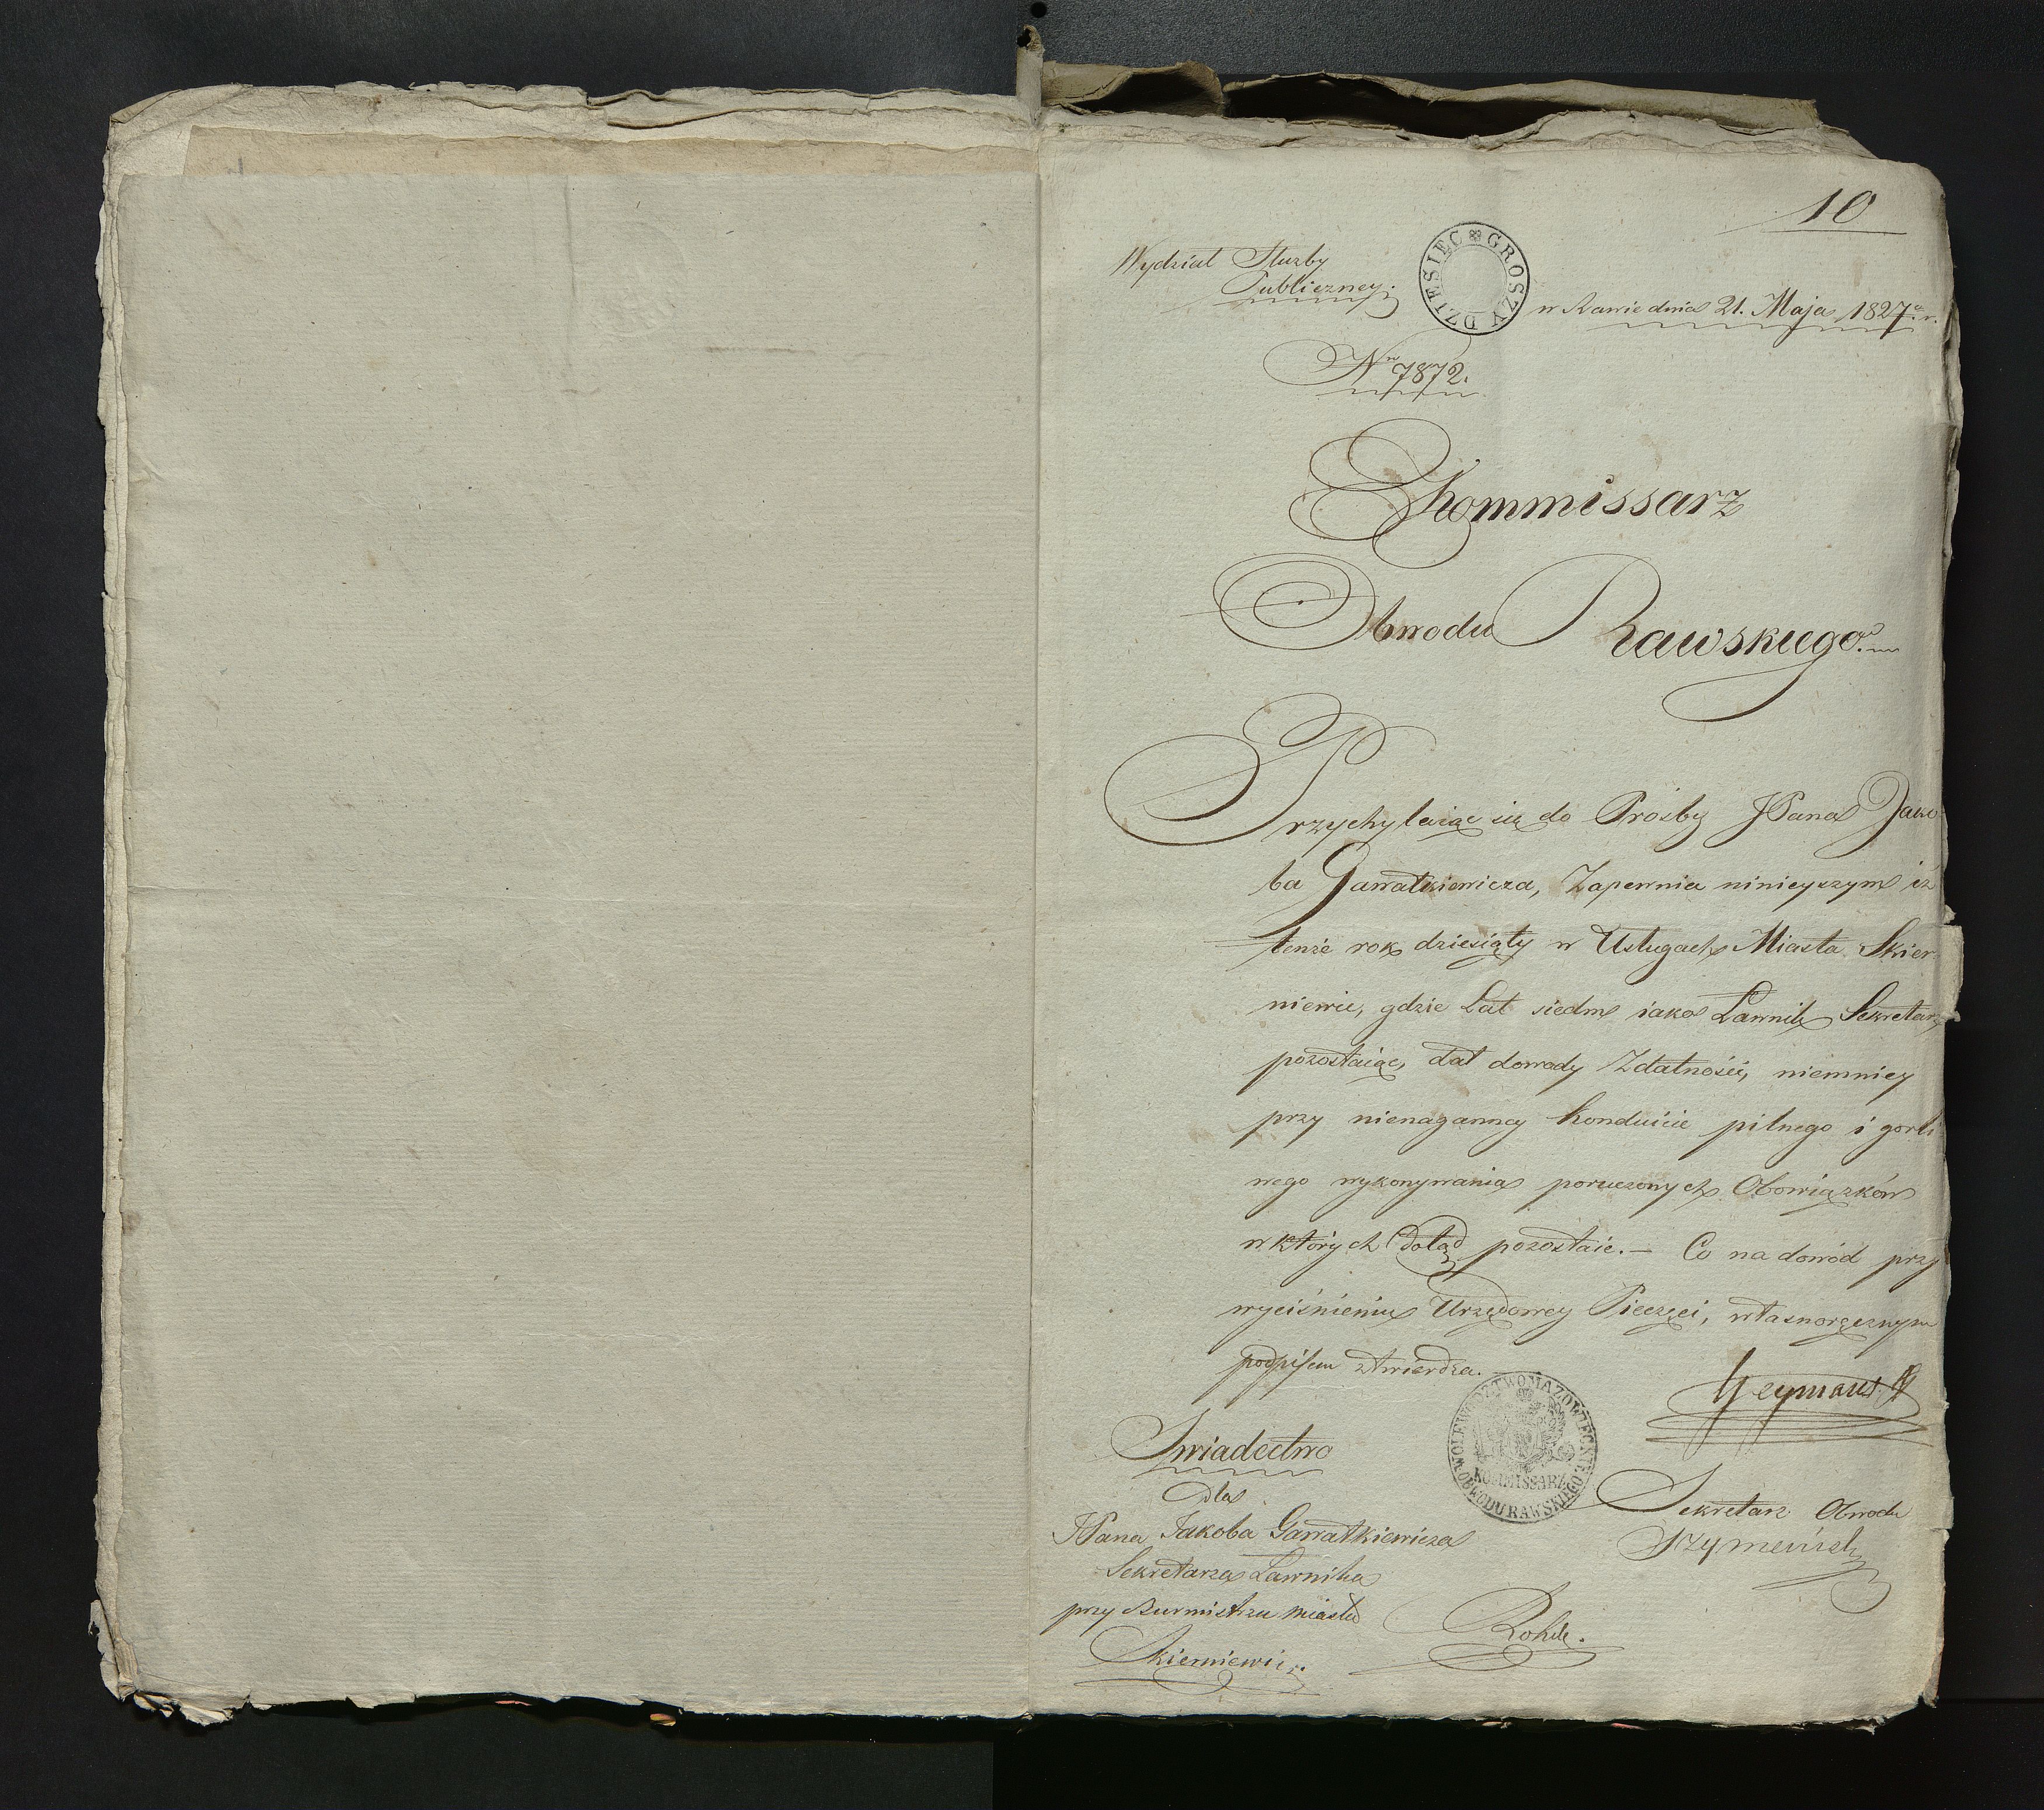 10
Wydział Służby
Publiczney.
DZIESIĘC GROSZY
w Rawie dnia 21. Maja 1827. r.
Nro 7872.
Kommissarz
Obwodu Rawskiego.
Przychylaiąc się do Prośby JPana Jako
ba Gawałkiewicza, Zapewnia ninieyszym iż
tenże rok dziesiąty w Usługach Miasta Skier
niewic, gdzie Lat siedm iako Ławnik Sekretarz
pozostaiąc, dał dowody Zdatności, niemniey
przy nienaganney Konduicie pilnego i gorli
wego wykonywania poruczonych Obowiązków
w których dotąd pozostaie. — Co na dowód przy
wyciśnieniu Urzędowey Pieczęci, własnoręcznym
podpisem ztwierdza.
WOJEWODZTWO MAZOWIECKIE
KOMMISSARZ
OBWODU RAWSKIEGO
Sekretarz Obwodu
Swiadectwo
dla
JPana Jakoba Gawałkiewicza
Sekretarza Ławnika
przy Burmistrzu miasta
Skierniewic.
Rohde.